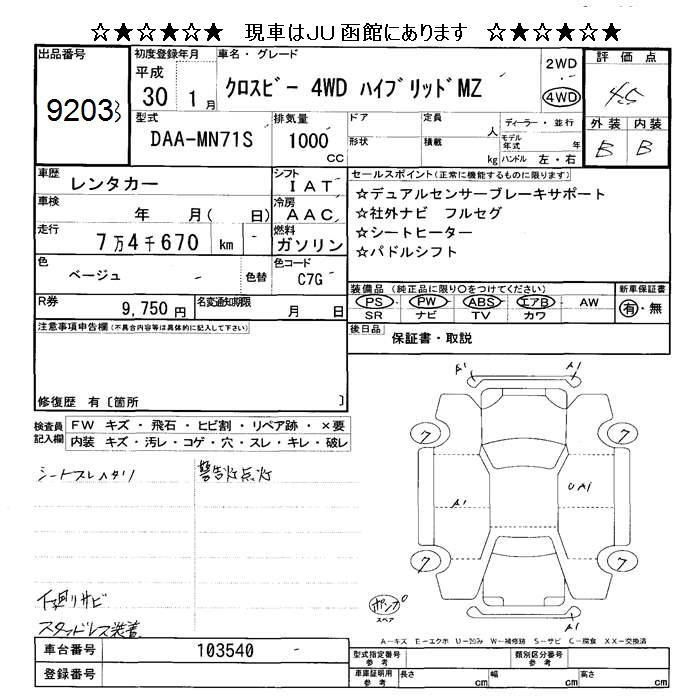 ☆★☆★☆★ 現車はJU函館にあります ☆★☆★☆★
出品番号
9203
初度登録年月
平成
30 1月
車名・グレード
クロスビー 4WD ハイブリッドMZ
2WD
4WD
評価点
4.5
外装 内装
B B
型式
DAA-MN71S
排気量
1000
CC
ドア
形状
定員
人
積載
kg
ディーラー・並行
モデル年式 年
ハンドル 左・右
車歴 レンタカー
シフト
IAT
車検 年 月( 日)
冷房
AAC
走行
7万4千670 km
燃料
ガソリン
色
ベージュ
色替
色コード
C7G
R券
9,750円
名変通知期限
月 日
セールスポイント(正常に機能するものに限ります)
☆デュアルセンサーブレーキサポート
☆社外ナビ フルセグ
☆シートヒーター
☆パドルシフト
装備品(純正品に限り○をつけてください)
新車保証書
PS PW ABS エアB AW
SR ナビ TV カワ
有・無
後日品
保証書・取説
注意事項申告欄(不具合内容等は具体的に記入して下さい)
修復歴 有〔箇所 〕
検査員記入欄
FW キズ・飛石・ヒビ割・リペア跡・×要
内装 キズ・汚レ・コゲ・穴・スレ・キレ・破レ
警告灯点灯
下廻りサビ
スタッドレス装着
A1 A1
7 7
A1 UA1
7 7
A1
スペア
A−キズ E−エクボ U−凹み W−補修跡 S−サビ C−腐食 XX−交換済
車台番号
103540
登録番号
型式指定番号
参考
類別区分番号
参考
車庫証明用
参考
長さ cm
幅 cm
高さ cm